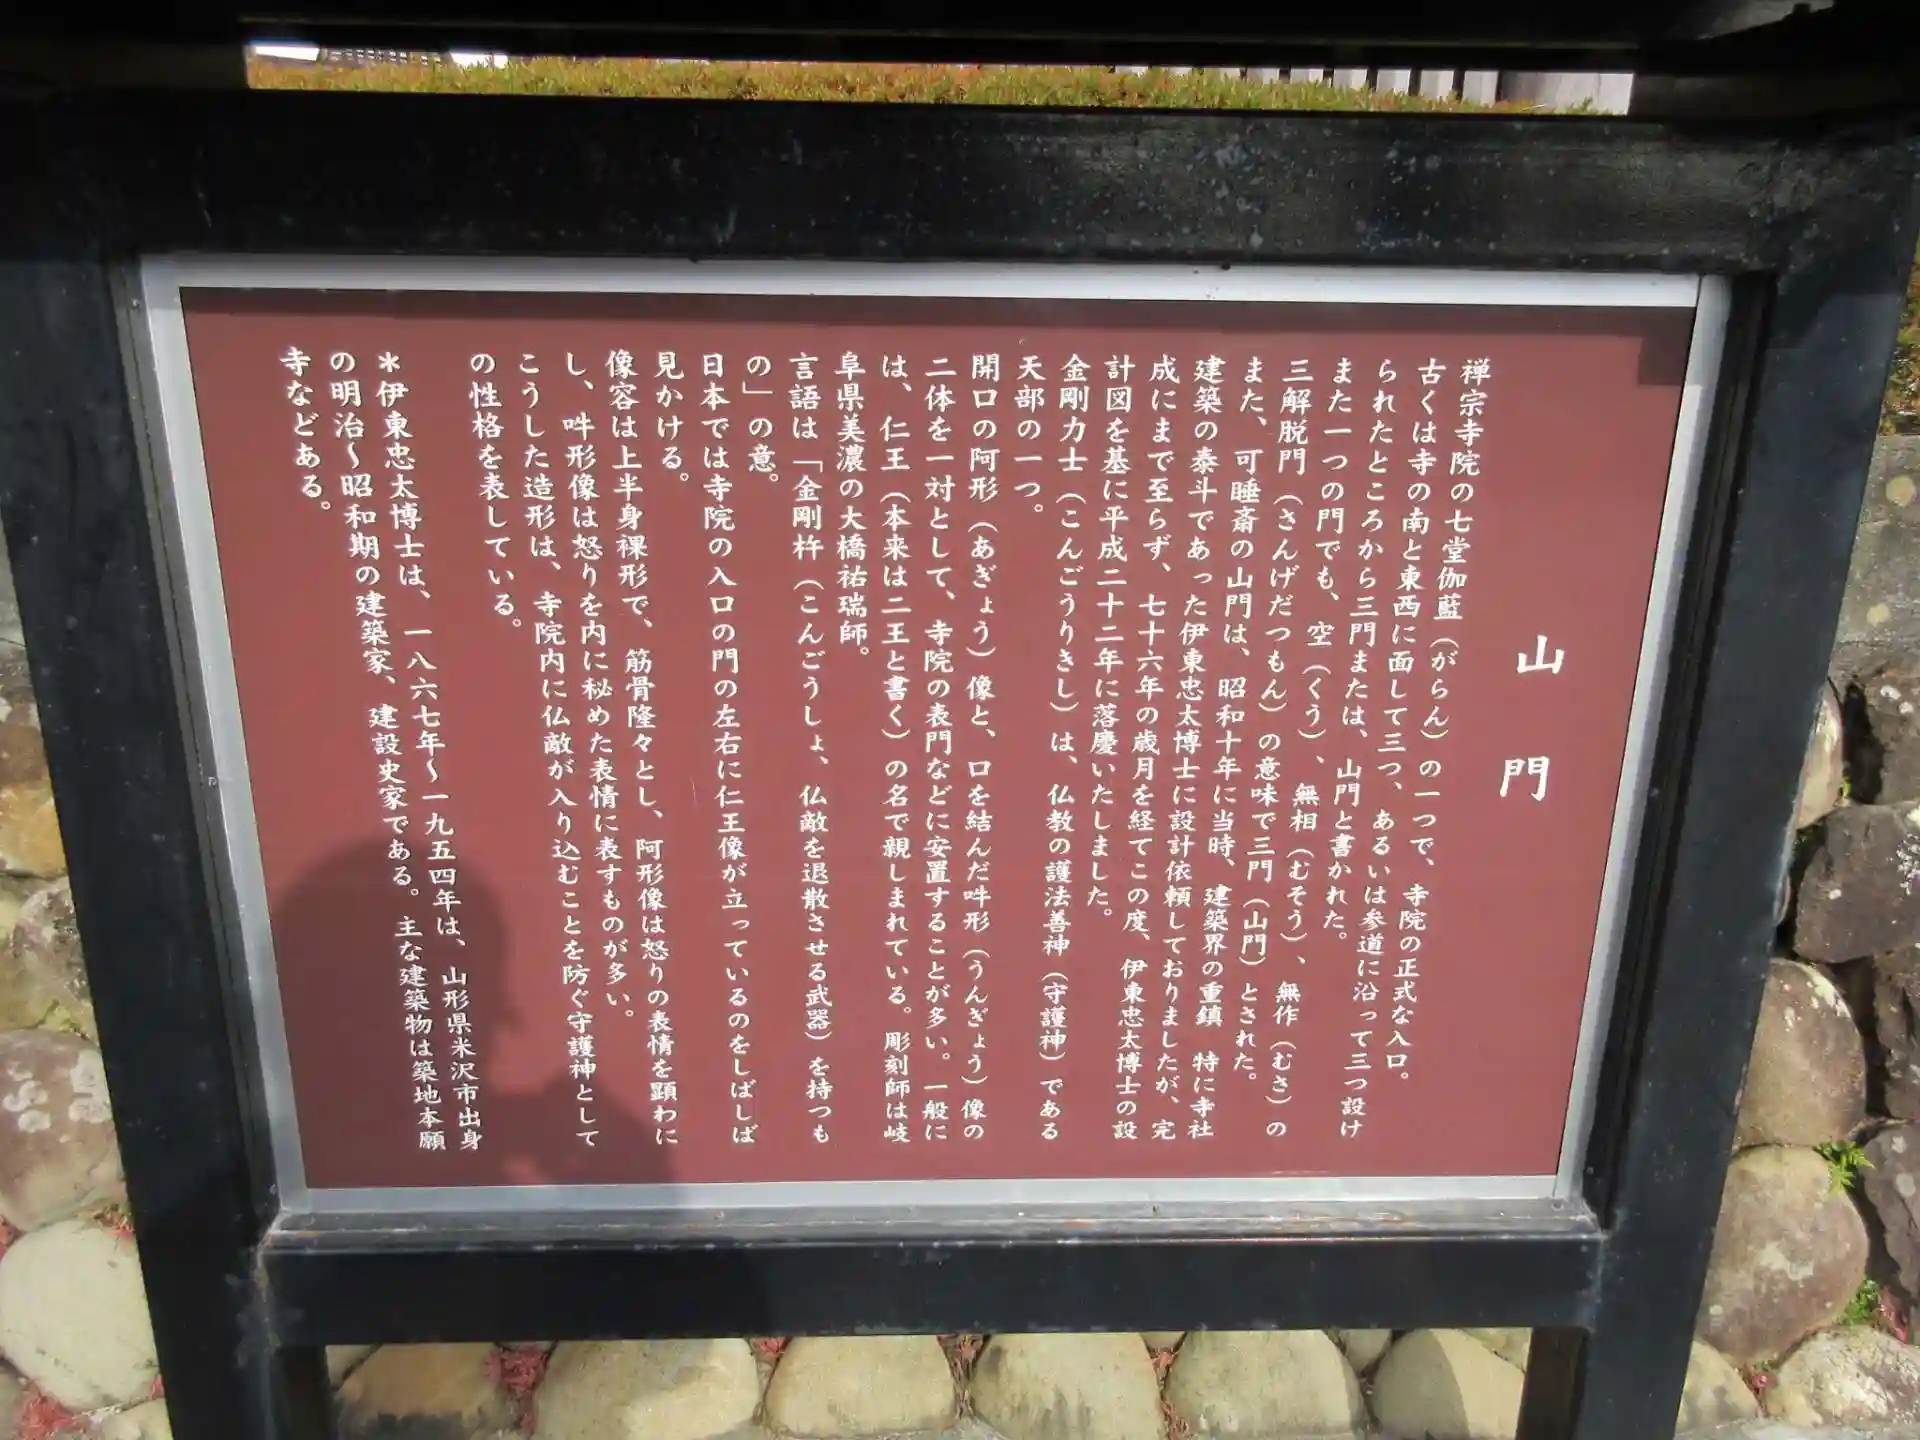 山門
禅宗寺院の七堂伽藍（がらん）の一つで、寺院の正式な入口。
古くは寺の南と東西に面して三つ、あるいは参道に沿って三つ設け
られたところから三門または、山門と書かれた。
また一つの門でも、空（くう）、無相（むそう）、無作（むさ）の
三解脱門（さんげだつもん）の意味で三門（山門）とされた。
また、可睡斎の山門は、昭和十年に当時、建築界の重鎮　特に寺社
建築の泰斗であった伊東忠太博士に設計依頼しておりましたが、完
成にまで至らず、七十六年の歳月を経てこの度、伊東忠太博士の設
計図を基に平成二十二年に落慶いたしました。
金剛力士（こんごうりきし）は、仏教の護法善神（守護神）である
天部の一つ。
開口の阿形（あぎょう）像と、口を結んだ吽形（うんぎょう）像の
二体を一対として、寺院の表門などに安置することが多い。一般に
は、仁王（本来は二王と書く）の名で親しまれている。彫刻師は岐
阜県美濃の大橋祐瑞師。
言語は「金剛杵（こんごうしょ、仏敵を退散させる武器）を持つも
の」の意。
日本では寺院の入口の門の左右に仁王像が立っているのをしばしば
見かける。
像容は上半身裸形で、筋骨隆々とし、阿形像は怒りの表情を顕わに
し、吽形像は怒りを内に秘めた表情に表すものが多い。
こうした造形は、寺院内に仏敵が入り込むことを防ぐ守護神として
の性格を表している。
＊伊東忠太博士は、一八六七年～一九五四年は、山形県米沢市出身
の明治～昭和期の建築家、建設史家である。主な建築物は築地本願
寺などある。